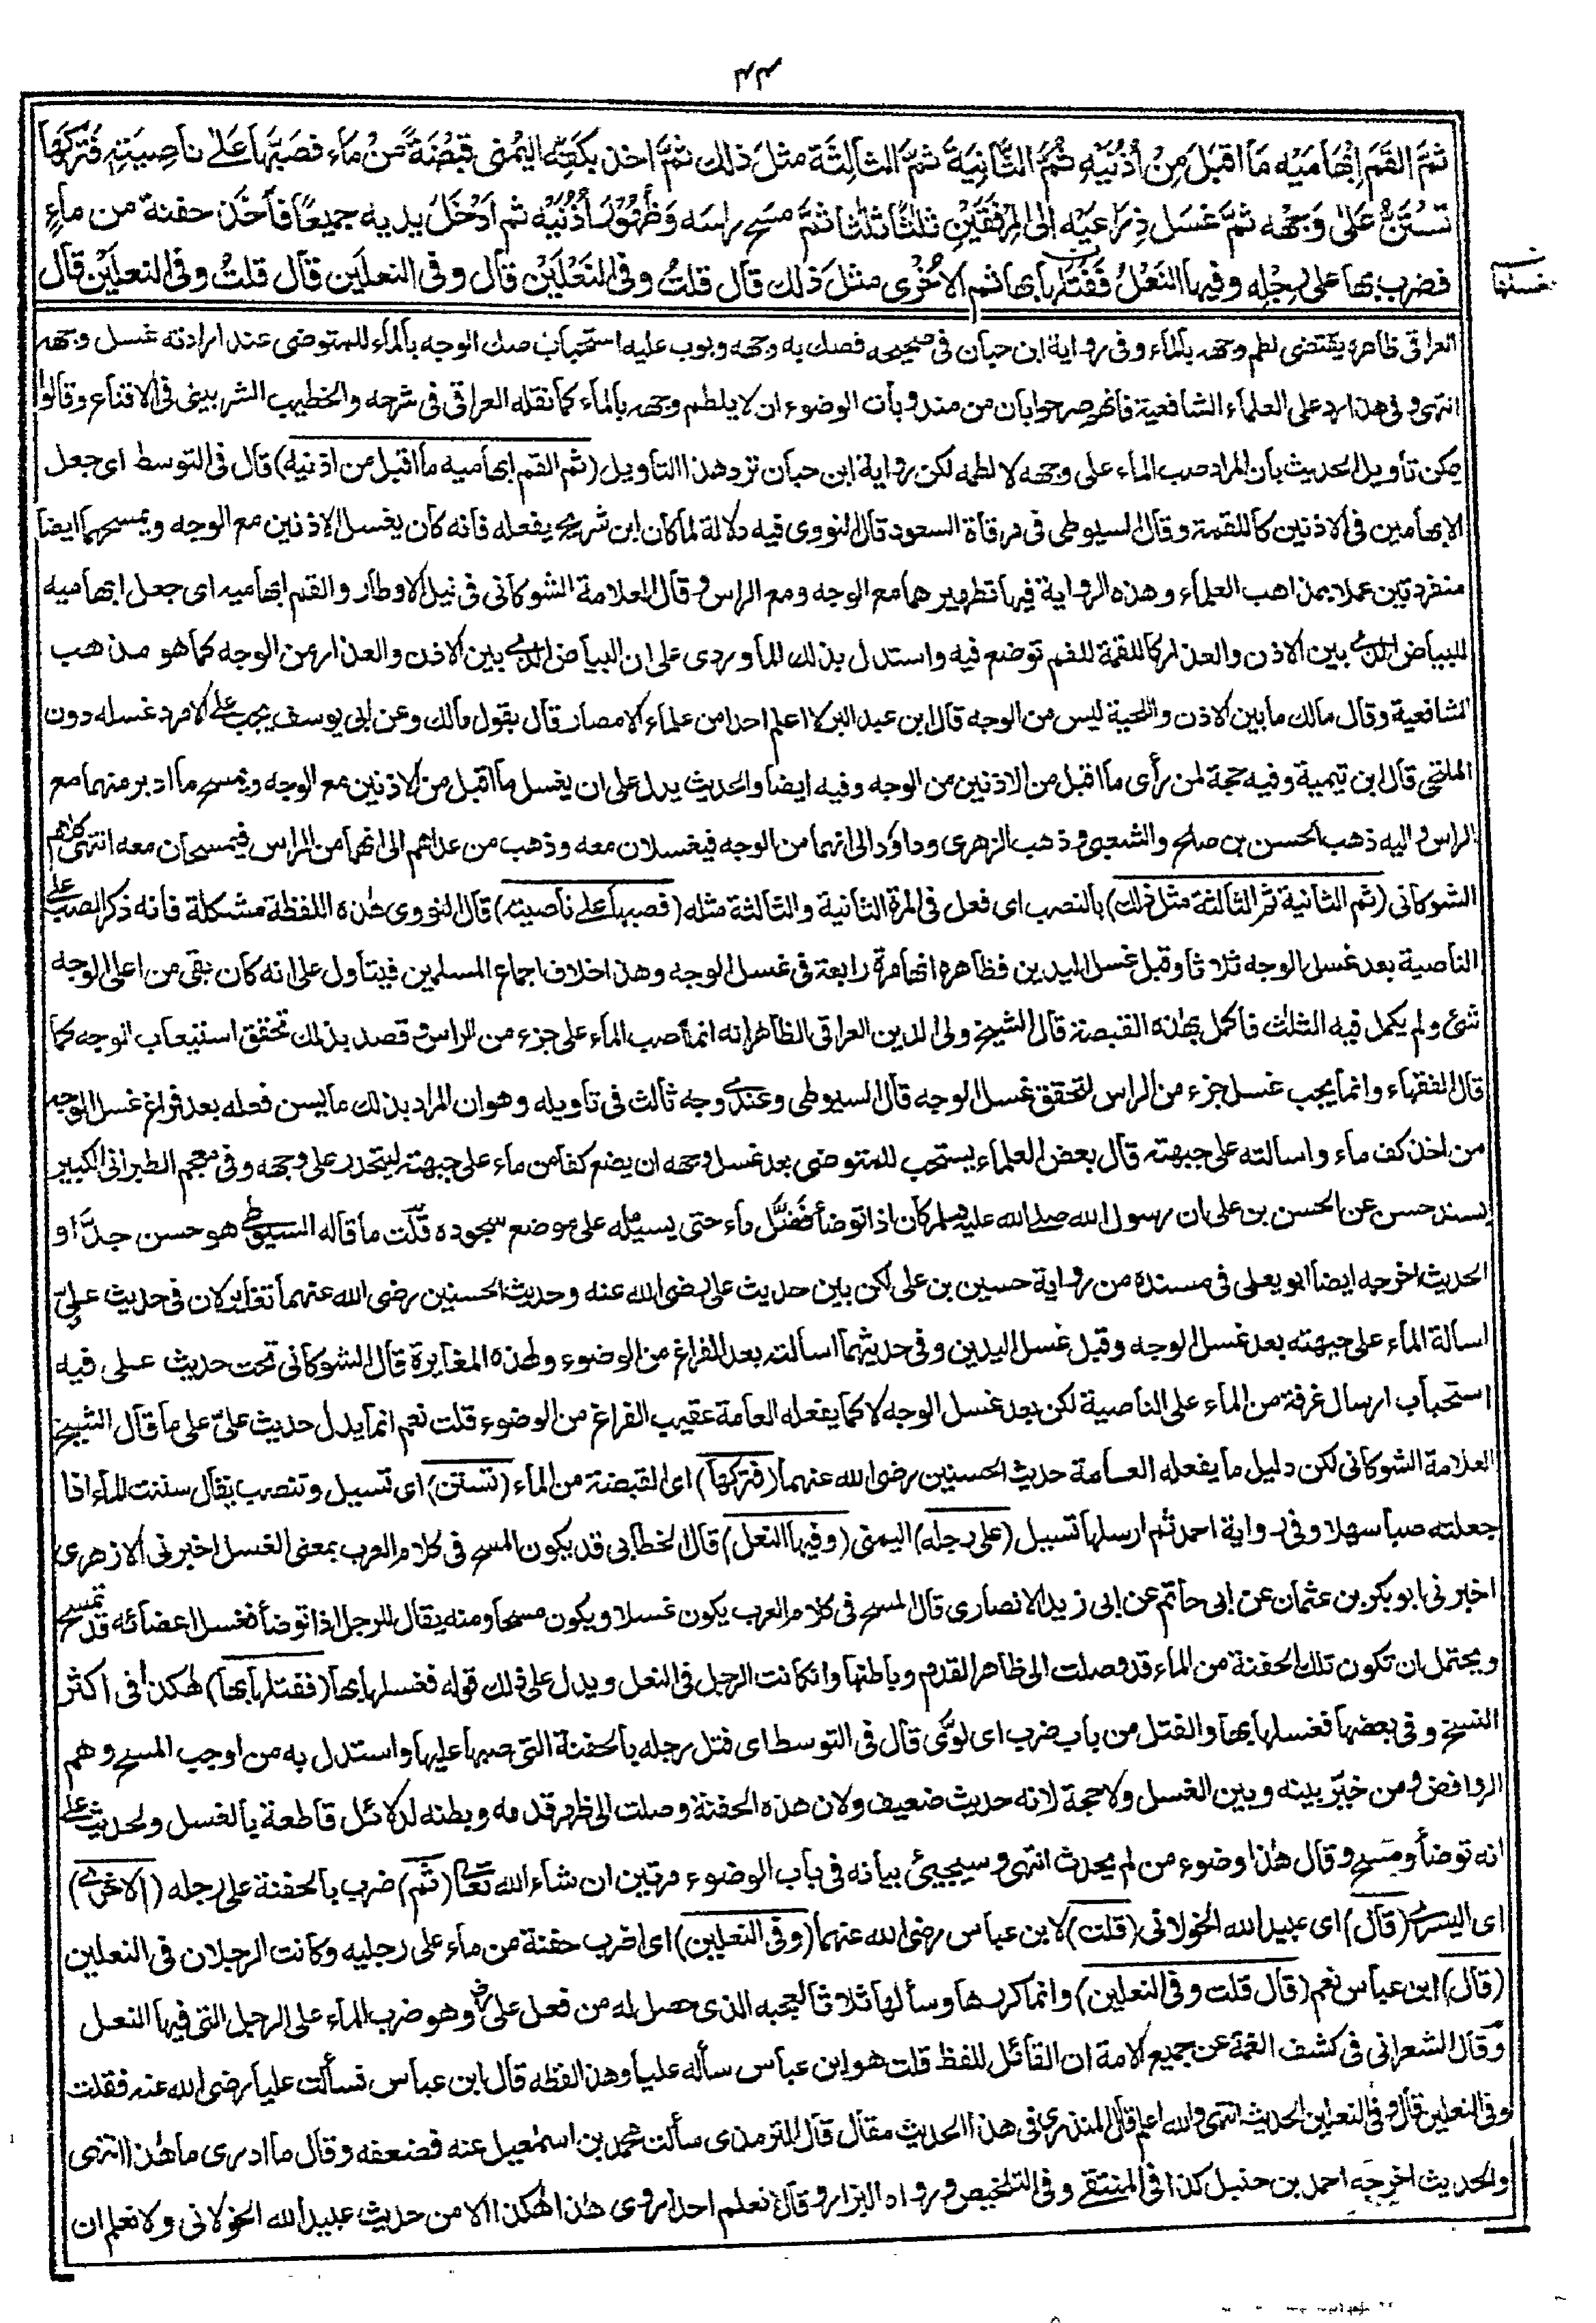 ثُمَّ القَمَ اِبْهَامَيْهِ مَا اقبَلَ مِنْ اُذُنَيْهِ ثُمَّ الثَّانِيَةَ ثُمَّ الثالِثَةَ مثلَ ذلك ثُمَّ اخذ بكَفِّهِ اليُمْنى قَبْضَةً مِنْ مَاء فصَبَّهَا عَلٰى ناصِيَتِهِ فَتَرَكَهَا
تَسْتَنُّ عَلٰى وَجْهِه ثُمَّ غَسَل ذِرَاعَيْه اِلَى المِرْفَقَيْنِ ثَلٰثًا ثَلٰثًا ثُمَّ مسَحَ راسَه وَظُهُوْرَ اُذُنَيْه ثم اَدْخَلَ يديه جميعًا فاَخَذَ حفنة من ماءٍ
فضرب بها على رِجْلِه وفيها النَعْلُ فَفَتَلَها بها ثم الاُخْرٰى مثلَ ذلك قال قلتُ وفى النَعْلَيْن قال وفى النعلَين قال قلتُ وفى النعلَيْن قال
فغسلها
العراقى ظاهره يقتضى لطم وجهه بالماء وفى رواية ابن حبان فى صحيحه فصك به وجهه وبوب عليه استحباب صك الوجه بالماء للمتوضى عند ارادته غسل وجهه
انتهى وفى هذا رد على العلماء الشافعية فانهم صرحوا بان من مندوبات الوضوء ان لا يلطم وجهه بالماء كما نقله العراقى فى شرحه والخطيب الشربينى فى الاقناع وقالوا
يمكن تاويل الحديث بان المراد صب الماء على وجهه لا لطمه لكن رواية ابن حبان ترد هذا التاويل (ثم القم ابهاميه ما اقبل من اذنيه) قال فى التوسط اى جعل
الابهامين فى الاذنين كاللقمة وقال السيوطى فى مرقاة السعود قال النووى فيه دلالة لما كان ابن شريح يفعله فانه كان يغسل الاذنين مع الوجه ويمسحهما ايضا
منفردتين عملا بمذاهب العلماء وهذه الرواية فيها تطهيرهما مع الوجه ومع الراس وقال العلامة الشوكانى فى نيل الاوطار والقم ابهاميه اى جعل ابهاميه
للبياض الذى بين الاذن والعذار كاللقمة للفم توضع فيه واستدل بذلك الماوردى على ان البياض الذى بين الاذن والعذار من الوجه كما هو مذهب
الشافعية وقال مالك ما بين الاذن واللحية ليس من الوجه قال ابن عبد البر لا اعلم احدا من علماء الامصار قال بقول مالك وعن ابى يوسف يجب على الامرد غسله دون
الملتحى قال ابن تيمية وفيه حجة لمن رأى ما اقبل من الاذنين من الوجه وفيه ايضا والحديث يدل على ان يغسل ما اقبل من الاذنين مع الوجه ويمسح ما ادبر منهما مع
الراس واليه ذهب الحسن بن صالح والشعبى وذهب الزهرى وداؤد الى انهما من الوجه فيغسلان معه وذهب من عداهم الى انهما من الراس فيمسحان معه انتهى كلام
الشوكانى (ثم الثانية ثم الثالثة مثل ذلك) بالنصب اى فعل فى المرة الثانية والثالثة مثله (فصبها على ناصيته) قال النووى هذه اللفظة مشكلة فانه ذكر الصب على
الناصية بعد غسل الوجه ثلاثا وقبل غسل اليدين فظاهره انها مرة رابعة فى غسل الوجه وهذا خلاف اجماع المسلمين فيتاول على انه كان بقى من اعلى الوجه
شئ ولم يكمل فيه الثلث فاكمل بهذه القبضة قال الشيخ ولى الدين العراقى الظاهر انه انما صب الماء على جزء من الراس وقصد بذلك تحقق استيعاب الوجه كما
قال الفقهاء وانما يجب غسل جزء من الراس لتحقق غسل الوجه قال السيوطى وعندى وجه ثالث فى تاويله وهو ان المراد بذلك ما يسن فعله بعد فراغ غسل الوجه
من اخذ كف ماء واسالته على جبهته قال بعض العلماء يستحب للمتوضى بعد غسل وجهه ان يضع كفا من ماء على جبهته ليتحدر على وجهه وفى معجم الطبرانى الكبير
بسند حسن عن الحسن بن على ان رسول الله صلى الله عليه وسلم كان اذا توضأ فَضَّل ماء حتى يسيله على موضع سجوده قلت ما قاله السيوطى هو حسن جدًّا و
الحديث اخرجه ايضا ابو يعلى فى مسنده من رواية حسين بن على لكن بين حديث على رضى الله عنه وحديث الحسنين رضى الله عنهما تغاير لان فى حديث علىّ
اسالة الماء على جبهته بعد غسل الوجه وقبل غسل اليدين وفى حديثهما اسالته بعد الفراغ من الوضوء ولهذه المغايرة قال الشوكانى تحت حديث على فيه
استحباب ارسال غرفة من الماء على الناصية لكن بعد غسل الوجه لا كما يفعله العامة عقيب الفراغ من الوضوء قلت نعم انما يدل حديث علىّ على ما قال الشيخ
العلامة الشوكانى لكن دليل ما يفعله العامة حديث الحسنين رضى الله عنهما (فتركها) اى القبضة من الماء (تستن) اى تسيل وتنصب يقال سننت الماء اذا
جعلته صبا سهلا وفى رواية احمد ثم ارسلها تسيل (على رجله) اليمنى (وفيها النعل) قال الخطابى قد يكون المسح فى كلام العرب بمعنى الغسل اخبرنى الازهرى
اخبرنى ابو بكر بن عثمان عن ابى حاتم عن ابى زيد الانصارى قال المسح فى كلام العرب يكون غسلا ويكون مسحا ومنه يقال للرجل اذا توضأ فغسل اعضائه قد تمسح
ويحتمل ان تكون تلك الحفنة من الماء قد وصلت الى ظاهر القدم وباطنها وان كانت الرجل فى النعل ويدل على ذلك قوله فغسلها بها (ففتلها بها) هكذا فى اكثر
النسخ وفى بعضها فغسلها بها والفتل من باب ضرب اى لوّى قال فى التوسط اى فتل رجله بالحفنة التى صبها عليها واستدل به من اوجب المسح وهم
الروافض ومن خيّر بينه وبين الغسل ولا حجة لانه حديث ضعيف ولان هذه الحفنة وصلت الى ظهر قدمه وبطنه لدلائل قاطعة بالغسل ولحديث على
انه توضأ ومسح وقال هذا وضوء من لم يحدث انتهى وسيجيئ بيانه فى باب الوضوء مرتين ان شاء الله تعالى (ثم) ضرب بالحفنة على رجله (الاخرى)
اى اليسرى (قال) اى عبيد الله الخولانى (قلت) لابن عباس رضى الله عنهما (وفى النعلين) اى اضرب حفنة من ماء على رجليه وكانت الرجلان فى النعلين
(قال) ابن عباس نعم (قال قلت وفى النعلين) وانما كررها وسألها ثلاثا لعجبه الذى حصل له من فعل على رض وهو ضرب الماء على الرجل التى فيها النعل
وقال الشعرانى فى كشف الغمة عن جميع الامة ان القائل للفظ قلت هو ابن عباس سأله عليا وهذا لفظه قال ابن عباس فسألت عليا رضى الله عنه فقلت
وفى النعلين قال وفى النعلين الحديث انتهى والله اعلم قال المنذرى فى هذا الحديث مقال قال الترمذى سألت محمد بن اسمعيل عنه فضعفه وقال ما ادرى ما هذا انتهى
والحديث اخرجه احمد بن حنبل كذا فى المنتقى وفى التلخيص ورواه البزار وقال لا نعلم احدا روى هذا هكذا الا من حديث عبيد الله الخولانى ولا نعلم ان